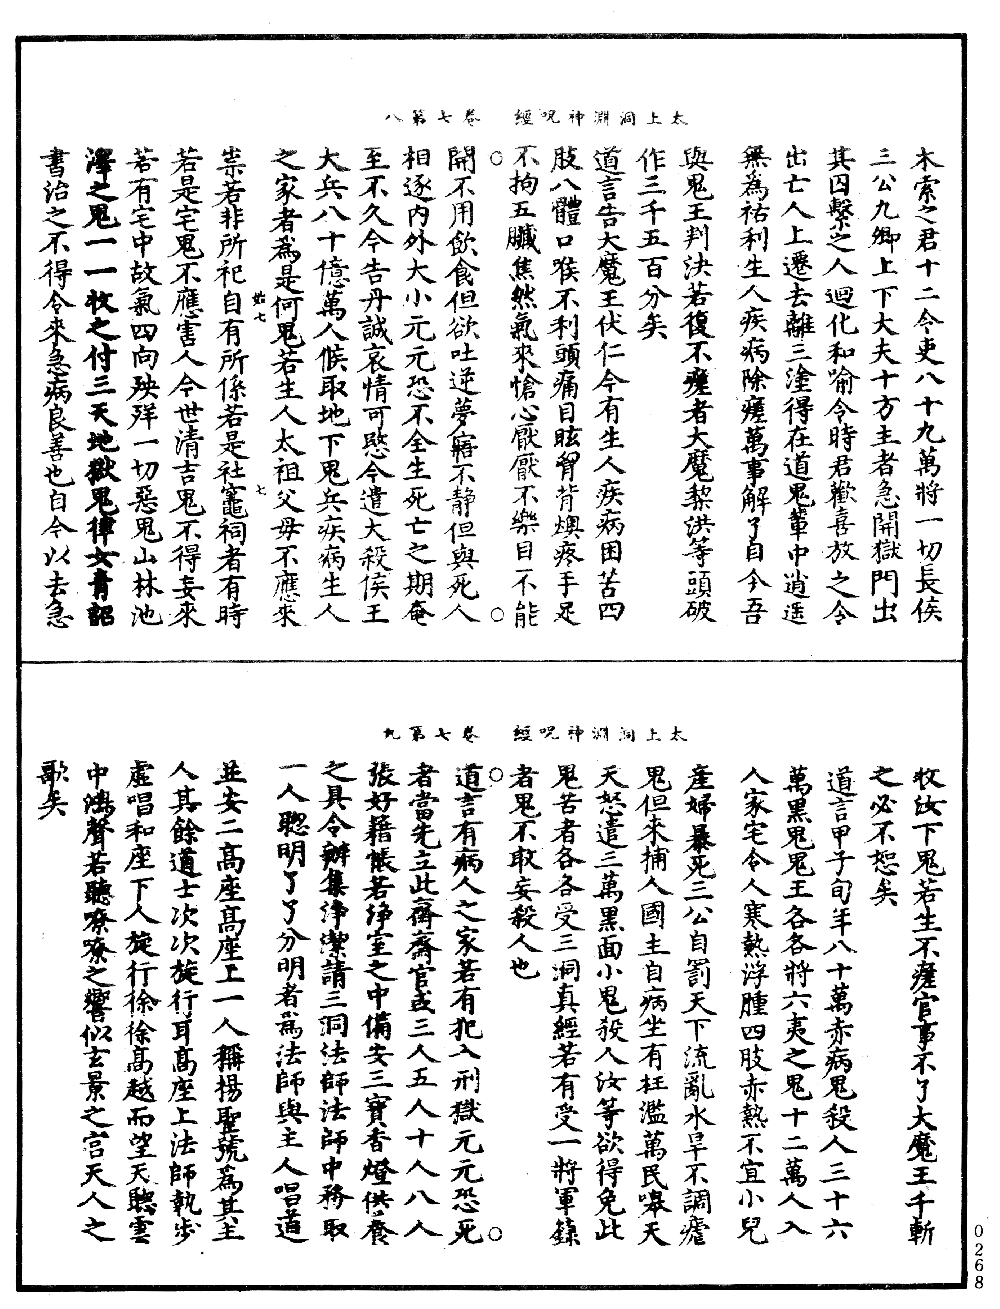 太上洞淵神呪經　卷七第八
木索之君十二令吏八十九萬將一切長侯
三公九卿上下大夫十方主者急開獄門出
其囚繫之人迴化和喻令時君歡喜放之令
出亡人上遷去離三塗得在道鬼輩中逍遥
無為祐利生人疾病除瘥萬事解了自今吾
與鬼王判決若復不瘥者大魔黎洪等頭破
作三千五百分矣
道言告大魔王伏仁今有生人疾病困苦四
肢八體口喉不利頭痛目眩胷背燠疼手足
不拘五臟焦然氣來愴心厭厭不樂目不能
開不用飲食但欲吐逆夢寤不静但與死人
相逐内外大小元元恐不全生死亡之期奄
至不久今告丹誠哀情可愍今遣大殺侯王
大兵八十億萬人候取地下鬼兵疾病生人
之家者為是何鬼若生人太祖父母不應來
始七　七
祟若非所祀自有所係若是社竈祠者有時
若是宅鬼不應害人今世清吉鬼不得妄來
若有宅中故氣四向殃殍一切惡鬼山林池
澤之鬼一一收之付三天地獄鬼律女青詔
書治之不得令來急病良善也自今以去急
太上洞淵神呪經　卷七第九
收汝下鬼若生不瘥官事不了大魔王千斬
之必不恕矣
道言甲子旬年八十萬赤病鬼殺人三十六
萬黑鬼鬼王各各將六夷之鬼十二萬人入
人家宅令人寒熱浮腫四肢赤熱不宜小兒
產婦暴死三公自罰天下流亂水旱不調瘧
鬼但來捕人國主自病坐有枉濫萬民嗥天
天怒遣三萬黑面小鬼殺人汝等欲得免此
鬼苦者各各受三洞真經若有受一將軍籙
者鬼不敢妄殺人也
道言有病人之家若有犯入刑獄元元恐死
者當先立此齋齋官或三人五人十人八人
張好籍帳若浄室之中備安三寶香燈供養
之具令辦集浄潔請三洞法師法師中務取
一人聰明了了分明者為法師與主人唱道
並安二高座高座上一人稱揚聖號為其主
人其餘道士次次旋行耳高座上法師執步
虛唱和座下人旋行徐徐高越而望天聽雲
中鴻聲若聽嘹嘹之響似玄景之宫天人之
歌矣
0268